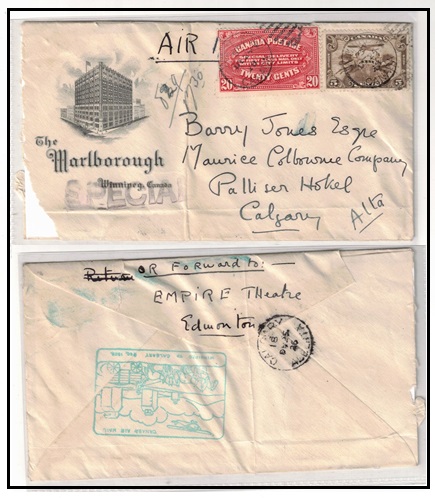 AIR
CANADA POSTAGE
SPECIAL DELIVERY
20 TWENTY CENTS 20
5 5
The
Marlborough
Winnipeg, Canada
SPECIAL
Barry Jones Esqre
Maurice Colbourne Company
Palliser Hotel
Calgary
Alta
Return OR FORWARD to:—
EMPIRE Theatre
Edmonton
CALGARY ALBERTA
CANADA AIR MAIL